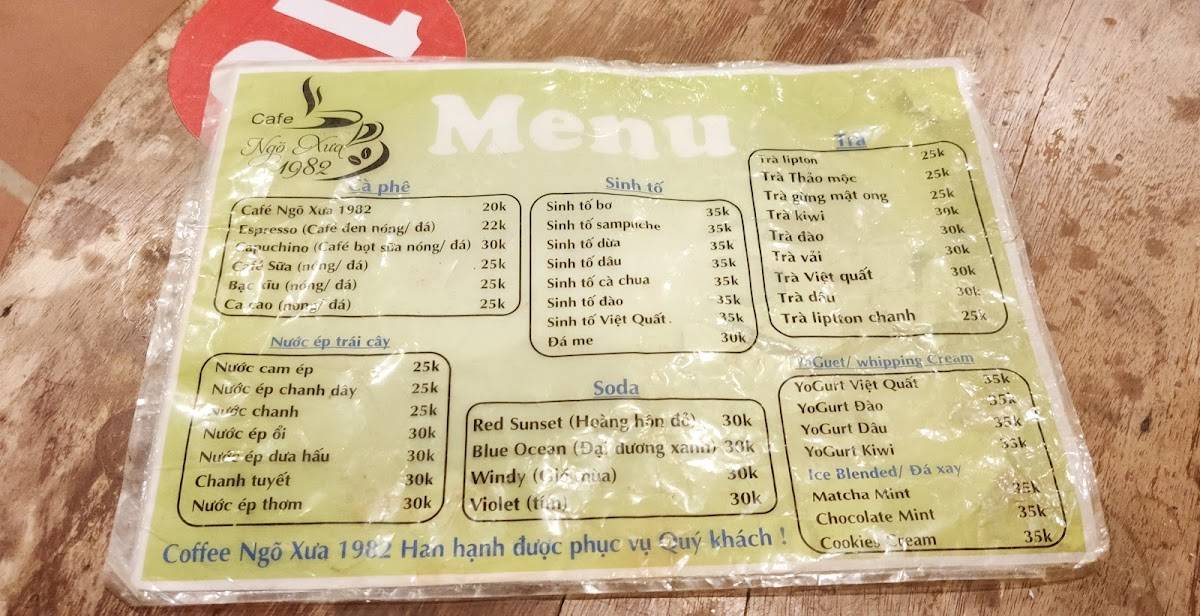 Cafe
Ngõ Xưa
1982
Menu
Cà phê
Café Ngõ Xưa 1982 20k
Espresso (Café đen nóng/ đá) 22k
Capuchino (Café bọt sữa nóng/ đá) 30k
Café Sữa (nóng/ đá) 25k
Bạc sỉu (nóng/ đá) 25k
Ca cao (nóng/ đá) 25k
Nước ép trái cây
Nước cam ép 25k
Nước ép chanh dây 25k
Nước chanh 25k
Nước ép ổi 30k
Nước ép dưa hấu 30k
Chanh tuyết 30k
Nước ép thơm 30k
Sinh tố
Sinh tố bơ 35k
Sinh tố sampuche 35k
Sinh tố dừa 35k
Sinh tố dâu 35k
Sinh tố cà chua 35k
Sinh tố đào 35k
Sinh tố Việt Quất. 35k
Đá me 30k
Soda
Red Sunset (Hoàng hôn đỏ) 30k
Blue Ocean (Đại dương xanh) 30k
Windy (Gió mùa) 30k
Violet (tím) 30k
Trà
Trà lipton 25k
Trà Thảo mộc 25k
Trà gừng mật ong 25k
Trà kiwi 30k
Trà đào 30k
Trà vải 30k
Trà Việt quất 30k
Trà dâu 30k
Trà liptton chanh 25k
YaGuet/ whipping Cream
YoGurt Việt Quất 35k
YoGurt Đào 35k
YoGurt Dâu 35k
YoGurt Kiwi 35k
Ice Blended/ Đá xay
Matcha Mint 35k
Chocolate Mint 35k
Cookies Cream 35k
Coffee Ngõ Xưa 1982 Hân hạnh được phục vụ Quý khách !